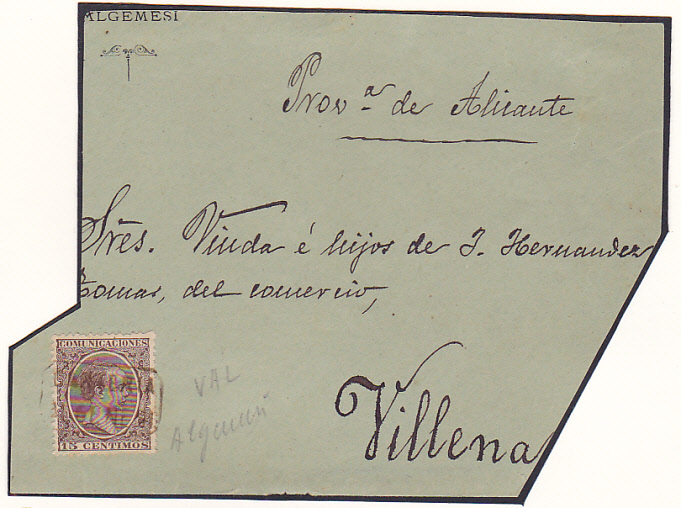 ALGEMESÍ
Prov.ª de Alicante
Sres. Viuda é hijos de J. Hernandez
Tomas, del comercio,
Villena
COMUNICACIONES
15 CENTIMOS
VAL
Algemesí